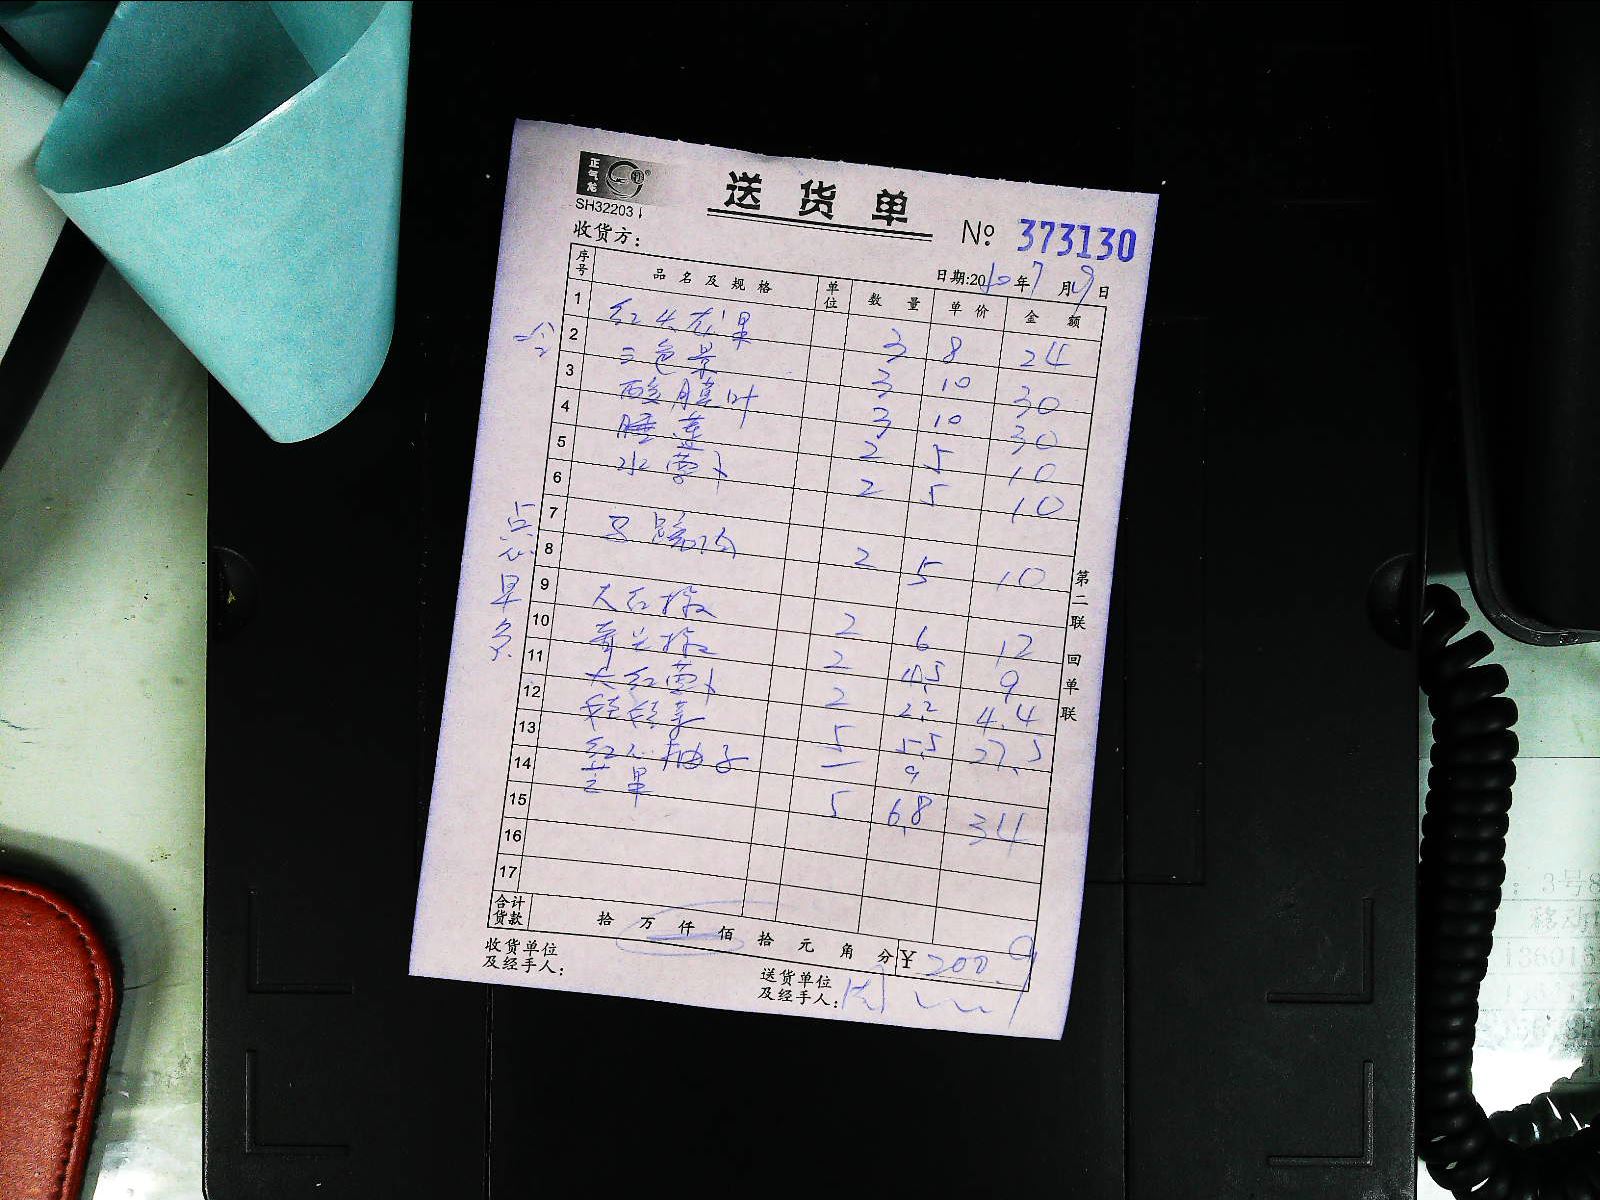 正气龙
SH32203
送货单
№ 373130
收货方:
日期:20 10 年 7 月 9 日
序号 品名及规格 单位 数量 单价 金额
1 红火龙果 3 8 24
2 三色景 3 10 30
3 酸膜叶 3 10 30
4 睡莲 2 5 10
5 水萝卜 2 5 10
6
7 2 5 10
8
9 大红椒 2 6 12
10 青尖椒 2 4.5 9
11 大红萝卜 2 2.2 4.4
12 5 5.5 27.5
13 红心柚子 一 9
14 芒果 5 6.8 34
15
16
17
点心
早务
第二联 回单联
合计货款 拾 万 仟 佰 拾 元 角 分 ¥ 200.9
收货单位及经手人:
送货单位及经手人:
: 3号8
移动